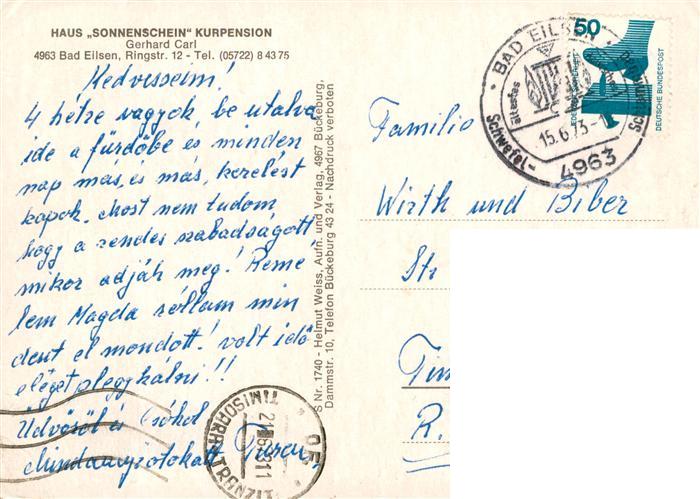 HAUS „SONNENSCHEIN" KURPENSION
Gerhard Carl
4963 Bad Eilsen, Ringstr. 12 - Tel. (05722) 8 43 75
Kedvesseim!
4 hétre vagyok, be utalva
ide a fürdőbe és minden
nap más, és más, kezelést
kapok. Most nem tudom
hogy a rendes szabadságott
mikor adják meg! Reme
lem Magda rólam min
dent el mondott! volt idő
eléget pleggkálni!!
Üdvözöl és csókol
Mindannyiotokatt
S Nr. 1740 - Helmut Weiss, Aufn. und Verlag, 4967 Bückeburg,
Dammstr. 10, Telefon Bückeburg 43 24 - Nachdruck verboten
50
DEUTSCHE BUNDESPOST
BAD EILSEN
ältestes
Schwefel-
15.6.73
4963
Familie
Wirth und Biber
Str
Tim
R.
TIMISOARA TRANZIT